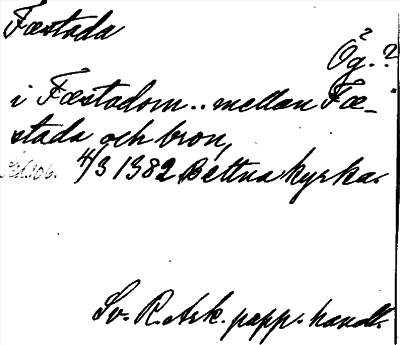 Fæstada
Ög.?
i Fæstadom.. mellan Fæ-
stada och bron,
4/3 1382 Bettna kyrka.
Sv. R. Ark. papp. handl.